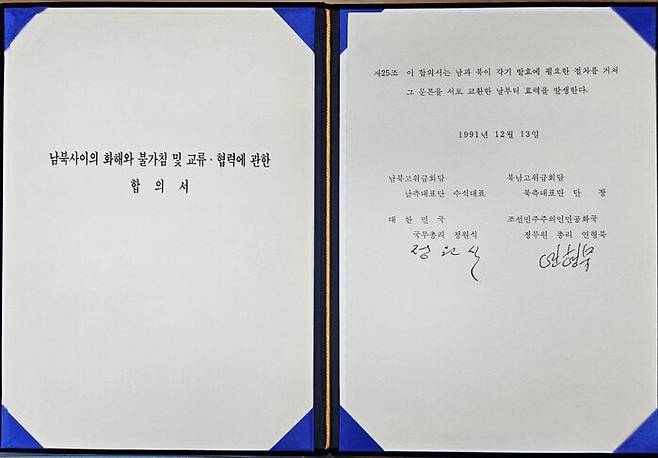 남북사이의 화해와 불가침 및 교류·협력에 관한
합 의 서
제25조 이 합의서는 남과 북이 각기 발효에 필요한 절차를 거쳐
그 문본을 서로 교환한 날부터 효력을 발생한다.
1991년 12월 13일
남북고위급회담
남측대표단 수석대표
대 한 민 국
국무총리 정원식
정원식
북남고위급회담
북측대표단 단 장
조선민주주의인민공화국
정무원 총리 연형묵
연형묵